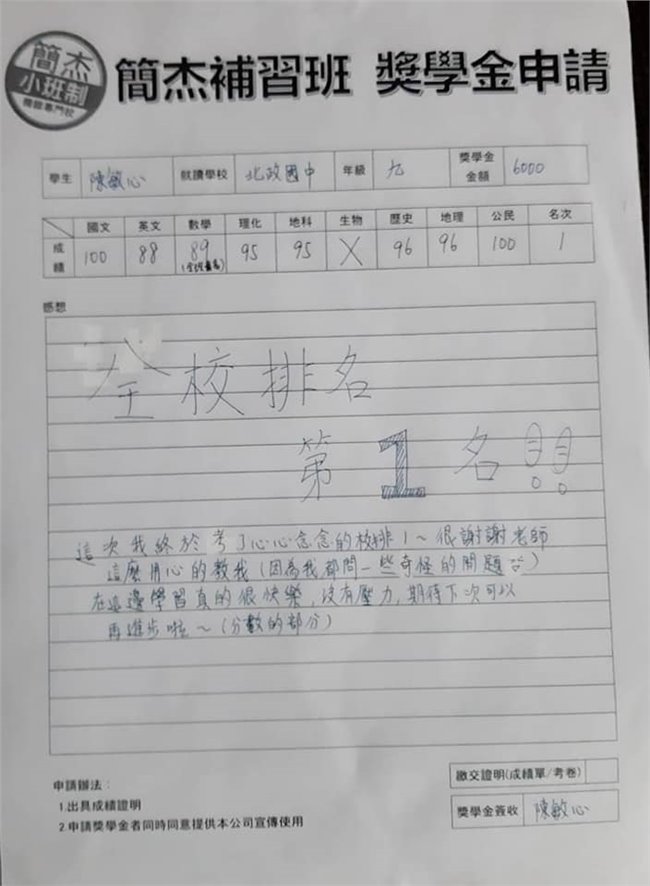 簡杰
小班制
簡杰補習班 獎學金申請
學生 陳敏心 就讀學校 北政國中 年級 九 獎學金金額 6000
國文 英文 數學 理化 地科 生物 歷史 地理 公民 名次
成績 100 88 89 95 95 X 96 96 100 1
感想
全校排名
第1名!!
這次我終於考了心心念念的校排1~很謝謝老師
這麼用心的教我(因為我都問一些奇怪的問題)
在這邊學習真的很快樂,沒有壓力,期待下次可以
再進步啦~(分數的部分)
申請辦法:
1.出具成績證明
2.申請獎學金者同時同意提供本公司宣傳使用
繳交證明(成績單/考卷)
獎學金簽收 陳敏心